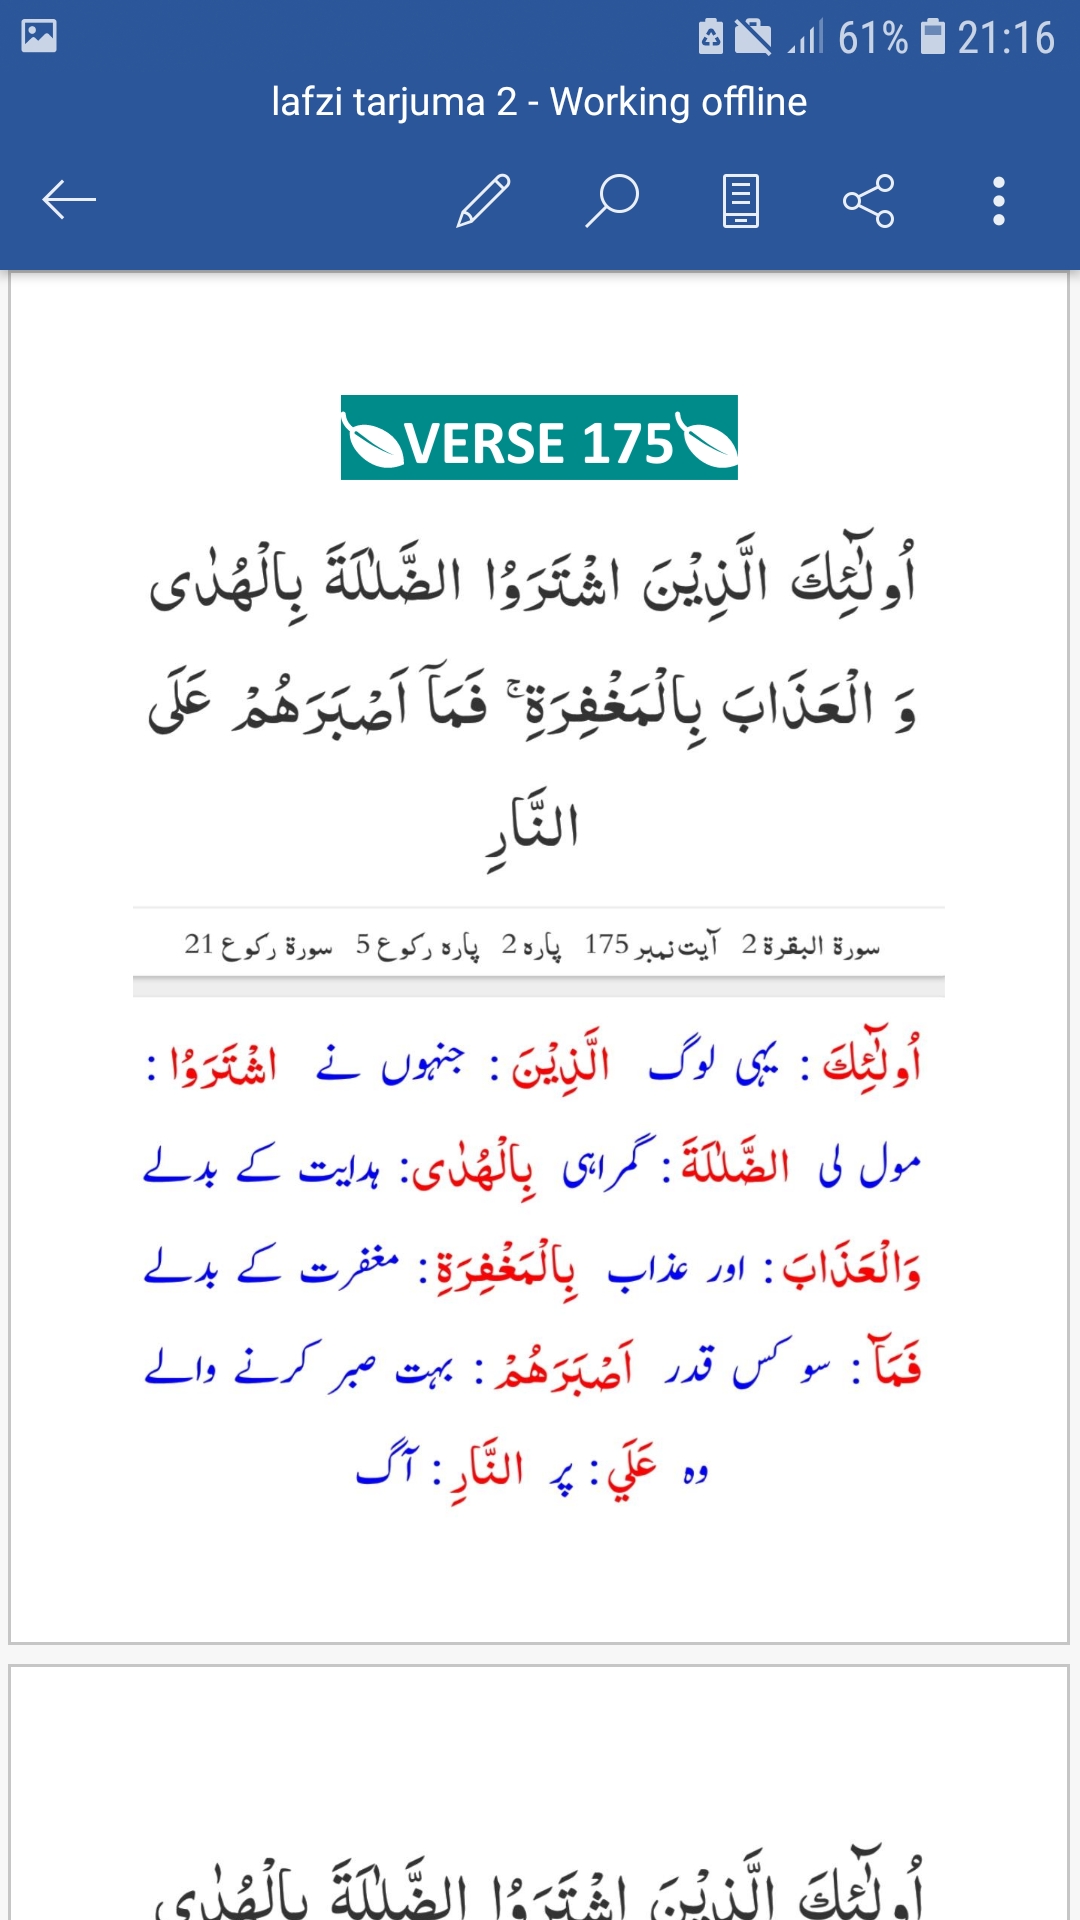 61% 21:16
lafzi tarjuma 2 - Working offline
VERSE 175
اُولٰٓئِكَ الَّذِيْنَ اشْتَرَوُا الضَّلٰلَةَ بِالْهُدٰى
وَ الْعَذَابَ بِالْمَغْفِرَةِ ۚ فَمَاۤ اَصْبَرَهُمْ عَلَى
النَّارِ
سورة البقرة 2 آیت نمبر 175 پارہ 2 پارہ رکوع 5 سورة رکوع 21
اُولٰٓئِكَ : یہی لوگ الَّذِيْنَ : جنہوں نے اشْتَرَوُا :
مول لی الضَّلٰلَةَ : گمراہی بِالْهُدٰى : ہدایت کے بدلے
وَالْعَذَابَ : اور عذاب بِالْمَغْفِرَةِ : مغفرت کے بدلے
فَمَاۤ : سو کس قدر اَصْبَرَهُمْ : بہت صبر کرنے والے
وہ عَلَي : پر النَّارِ : آگ
اُولٰٓئِكَ الَّذِيْنَ اشْتَرَوُا الضَّلٰلَةَ بِالْهُدٰى